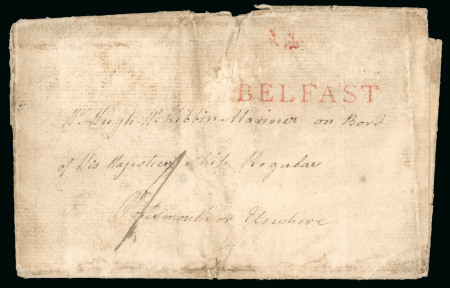 BELFAST
Mr Hugh McKibbin Mariner on Bord
of His Majesteys Ship Regulus
Portsmouth or Elsewhere